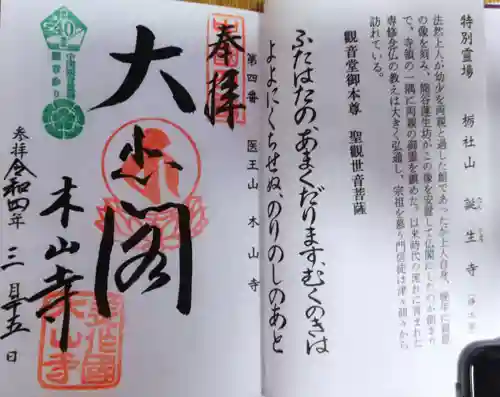 特別霊場 栃社山 誕生寺(浄土宗)
法然上人が幼少を両親と過した館であった。上人自身、晩年に自筆
の像を刻み、熊谷蓮生坊がこの像を安置して仏閣にしたのが始まり
で、寺領の一隅に両親の御霊を鎮めた。以来時代の流れに育まれた
専修念仏の教えは大きく弘通し、宗祖を慕う門信徒は津々浦々から
訪れている。
観音堂御本尊 聖観世音菩薩
ふたはたの、あまくだります、むくのきは
よよにくちせぬ、のりのしのあと
第四番 医王山 木山寺
奉拝
大悲閣
木山寺
参拝 令和四年 三月十五日
美作国
木山寺